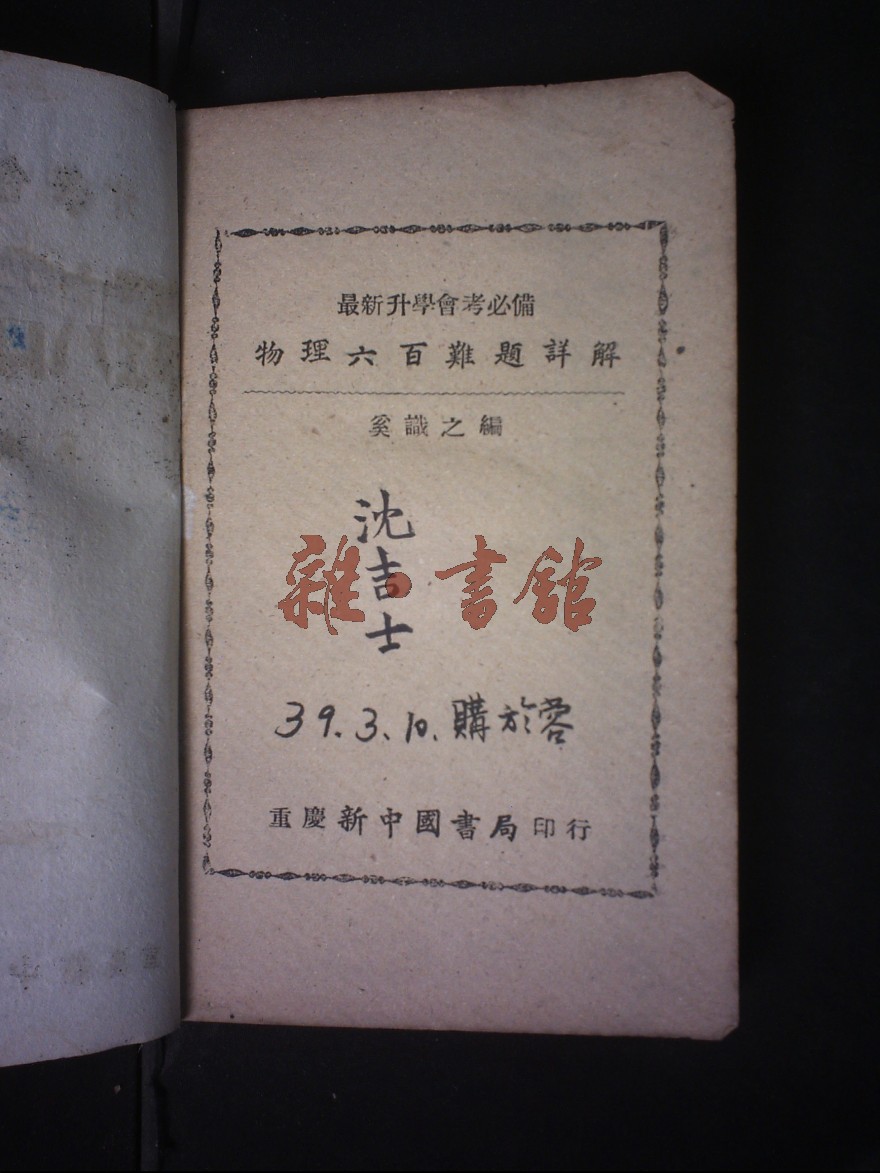 最新升學會考必備
物理六百難題詳解
奚識之編
沈吉士
雜·書舘
39.3.10.購於蓉
重慶新中國書局印行